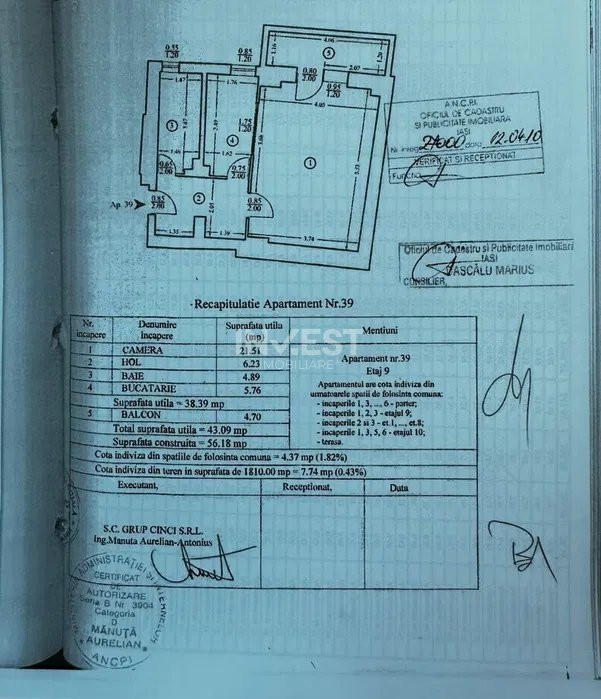 0.55
1.20
0.85
1.20
4.06
1.16
5
1.20
2.07
0.80
2.00
0.95
1.20
4.05
1.67
1.76
3
4
1
1.75
1.20
1.46
1.62
0.65
2.00
0.75
2.00
2
Ap. 39
0.85
2.00
0.85
2.00
1.35
1.39
3.74
A.N.C.P.I.
OFICIUL DE CADASTRU
SI PUBLICITATE IMOBILIARA
IASI
data 12.04.10
VERIFICAT SI RECEPTIONAT
Oficiul de Cadastru si Publicitate Imobiliari
IASI
VASCĂLU MARIUS
CONSILIER,
Recapitulatie Apartament Nr.39
Nr. incapere Denumire incapere Suprafata utila (mp) Mentiuni
1 CAMERA 21.51
2 HOL 6.23
3 BAIE 4.89
4 BUCATARIE 5.76
Suprafata utila = 38.39 mp
5 BALCON 4.70
Total suprafata utila = 43.09 mp
Suprafata construita = 56.18 mp
Apartament nr.39
Etaj 9
Apartamentul are cota indiviza din
urmatoarele spatii de folosinta comuna:
- incaperile 1, 3, ..., 6 - parter;
- incaperile 1, 2, 3 - etajul 9;
- incaperile 2 si 3 - et.1, ..., et.8;
- incaperile 1, 3, 5, 6 - etajul 10;
- terasa.
Cota indiviza din spatiile de folosinta comuna = 4.37 mp (1.82%)
Cota indiviza din teren in suprafata de 1810.00 mp = 7.74 mp (0.43%)
Executant, Receptionat, Data
S.C. GRUP CINCI S.R.L.
Ing.Manuta Aurelian-Antonius
CERTIFICAT
DE
AUTORIZARE
Seria B Nr. 3904
Categoria
D
MĂNUȚĂ
AURELIAN
ANCPI
INVEST
IMOBILIARE